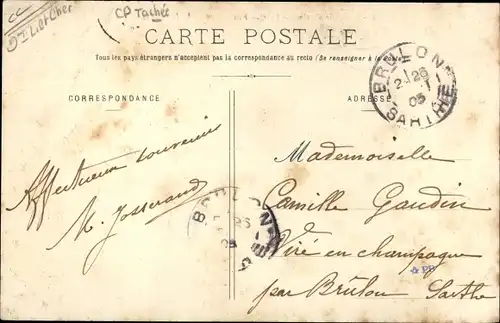 CC
Dt L. et Cher
CP Tachée
CARTE POSTALE
Tous les pays étrangers n'acceptent pas la correspondance au recto (Se renseigner à la Poste)
CORRESPONDANCE
ADRESSE
BRULON
2 26
1
05
SARTHE
Affectueux souvenir
M. Josserand
BRULON
26
05
Mademoiselle
Camille Gaudin
Viré en champagne
par Brûlon Sarthe